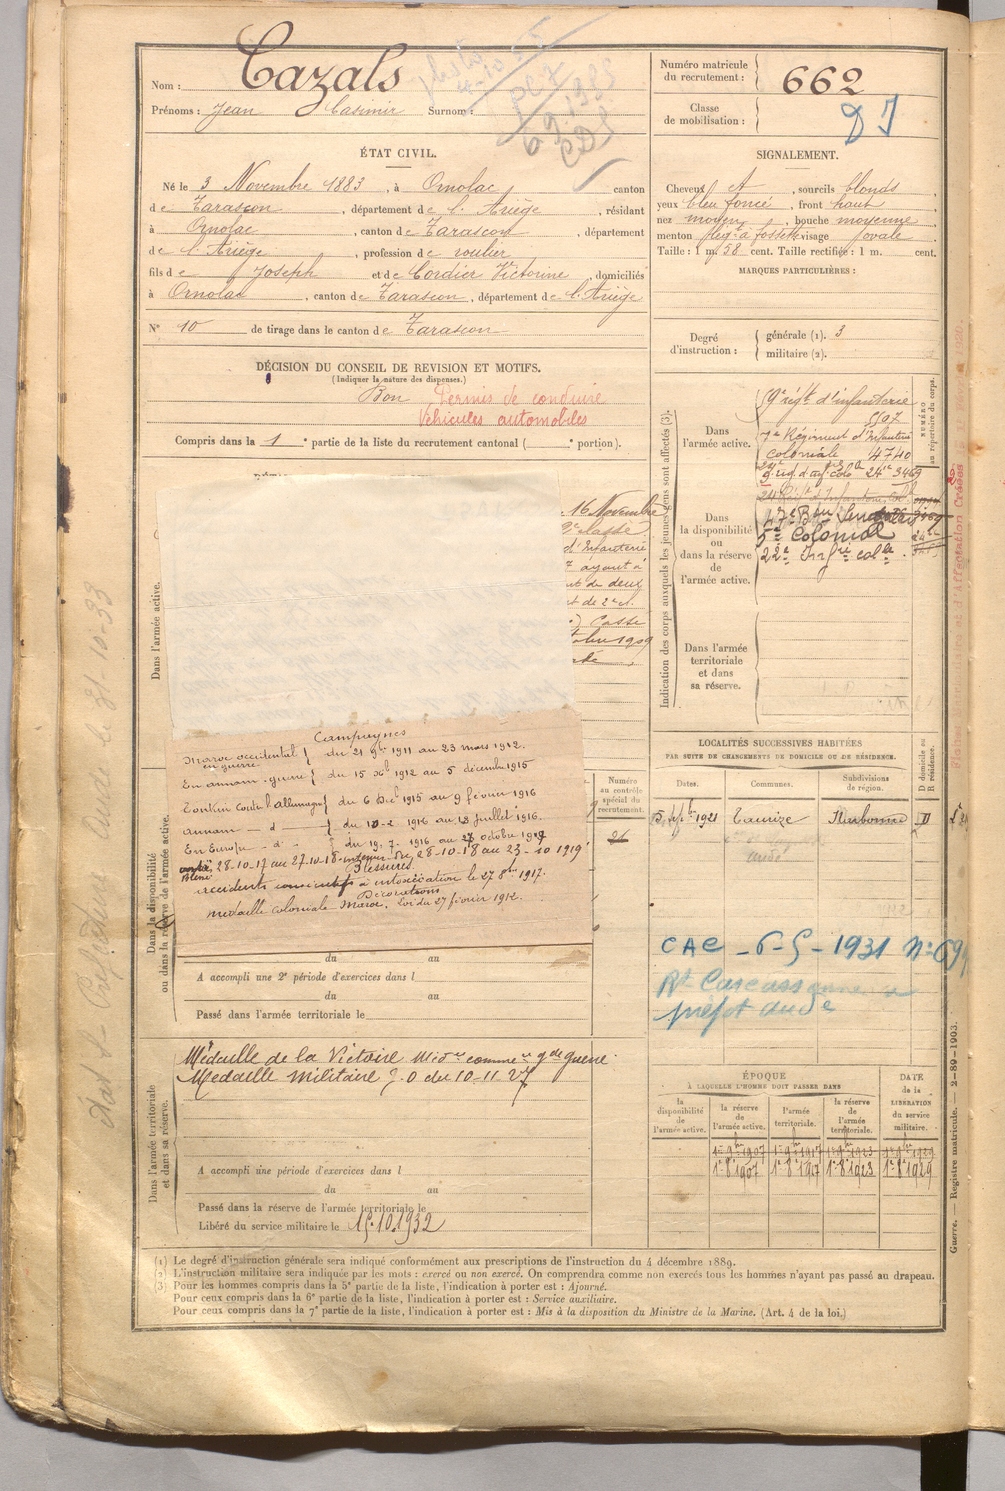 Nom : Cazals
Prénoms : Jean Casimir Surnom :
Numéro matricule du recrutement : 662
Classe de mobilisation :
ÉTAT CIVIL.
Né le 3 Novembre 1883, à Ornolac canton
de Tarascon, département de l'Ariège, résidant
à Ornolac, canton de Tarascon, département
de l'Ariège, profession de roulier
fils de Joseph et de Cordier Victorine, domiciliés
à Ornolac, canton de Tarascon, département de l'Ariège
N° 10 de tirage dans le canton de Tarascon
SIGNALEMENT.
Cheveux, sourcils blonds,
yeux bleu foncé, front haut,
nez moyen, bouche moyenne,
menton à fossette visage ovale.
Taille : 1 m. 58 cent. Taille rectifiée : 1 m. cent.
MARQUES PARTICULIÈRES :
Degré d'instruction :
générale (1). 3
militaire (2).
DÉCISION DU CONSEIL DE REVISION ET MOTIFS.
(Indiquer la nature des dispenses.)
Bon Permis de conduire
Véhicules automobiles
Compris dans la 1e partie de la liste du recrutement cantonal ( e portion).
Indication des corps auxquels les jeunes gens sont affectés (3).
NUMÉRO au répertoire du corps.
Dans l'armée active.
d'infanterie
7e Régiment d'Infanterie
coloniale 4740
Dans la disponibilité ou dans la réserve de l'armée active.
5e Colonial
22e Infrie colle
Dans l'armée territoriale et dans sa réserve.
Dans l'armée active.
16 Novembre
classe
d'Infanterie
ayant
de deux
de 2e cl.
Caste
1909
Campagnes
Maroc occidental en guerre } du 21 9bre 1911 au 23 mars 1912.
En annam guerre } du 15 Xbre 1912 au 5 décembre 1915
Tonkin contre l'allemagne } du 6 Dec 1915 au 9 février 1916
annam — d — } du 10-2 1916 au 13 juillet 1916.
En Europe - d° - } du 19.7.1916 au 27 octobre 1917
28-10-17 au 27-10-18 intérieur du 28-10-18 au 23-10 1919
Blessures
accidents consécutifs à intoxication le 27 8bre 1917.
Décorations
médaille coloniale Maroc, loi du 27 février 1912.
Dans la disponibilité ou dans la réserve de l'armée active.
Numéro au contrôle spécial du recrutement.
du au
A accompli une 2e période d'exercices dans l
du au
Passé dans l'armée territoriale le
LOCALITÉS SUCCESSIVES HABITÉES
PAR SUITE DE CHANGEMENTS DE DOMICILE OU DE RÉSIDENCE.
Dates. Communes. Subdivisions de région. D domicile ou R résidence.
5 7bre 1921 Taurize Narbonne D
Aude
CAC - 6-5-1931 N° 69
Rt Carcassonne
préfet aude
Dans l'armée territoriale et dans sa réserve.
Médaille de la Victoire Mdle comme ve gde guerre
Médaille Militaire J.O du 10-11-27
A accompli une période d'exercices dans l
du au
Passé dans la réserve de l'armée territoriale le
Libéré du service militaire le 15.10.1932
ÉPOQUE
À LAQUELLE L'HOMME DOIT PASSER DANS
la disponibilité de l'armée active. la réserve de l'armée active. l'armée territoriale. la réserve de l'armée territoriale.
DATE de la LIBÉRATION du service militaire.
1er 9bre 1907 1er 9bre 1917 1er 9bre 1923 1er 9bre 1929
1er 8bre 1907 1er 8bre 1917 1er 8bre 1923 1er 8bre 1929
(1) Le degré d'instruction générale sera indiqué conformément aux prescriptions de l'instruction du 4 décembre 1889.
(2) L'instruction militaire sera indiquée par les mots : exercé ou non exercé. On comprendra comme non exercés tous les hommes n'ayant pas passé au drapeau.
(3) Pour les hommes compris dans la 5e partie de la liste, l'indication à porter est : Ajourné.
Pour ceux compris dans la 6e partie de la liste, l'indication à porter est : Service auxiliaire.
Pour ceux compris dans la 7e partie de la liste, l'indication à porter est : Mis à la disposition du Ministre de la Marine. (Art. 4 de la loi.)
Guerre. — Registre matricule. — 2-89-1903.